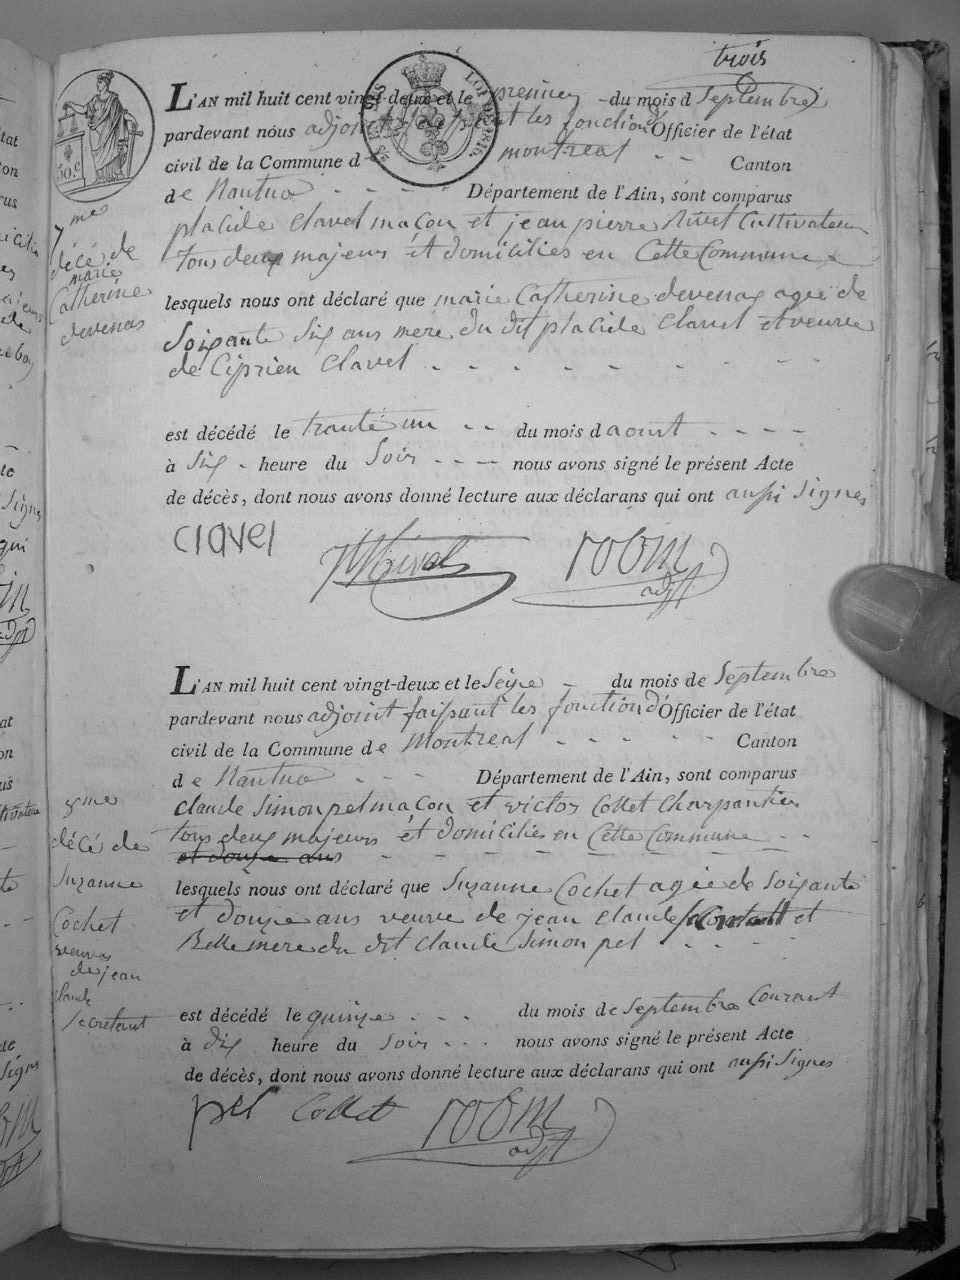 trois
L'AN mil huit cent vingt-deux et le premier du mois d Septembre
pardevant nous adjoint les fonctions d'Officier de l'état
civil de la Commune de montreal Canton
de Nantua Département de l'Ain, sont comparus
placide Clavel maçon et jean pierre Nivet Cultivateur
tous deux majeurs et domiciliés en Cette Commune
lesquels nous ont déclaré que marie Catherine devenas agée de
Soixante Six ans mere du dit placide Clavel et veuve
de Ciprien Clavel
est décédé le trante un du mois d aoust
à Six heure du Soir nous avons signé le présent Acte
de décès, dont nous avons donné lecture aux déclarans qui ont aussi Signés
clavel
robin
adjt
7me
décé de
marie
Catherine
devenas
50.c
LOI DE 1816.
L'AN mil huit cent vingt-deux et le Seize du mois de Septembre
pardevant nous adjoint faissant les fonction d'Officier de l'état
civil de la Commune de Montreal Canton
de Nantua Département de l'Ain, sont comparus
Claude Simon pel maçon et victor Collet Charpantier
tous deux majeurs et domiciliés en Cette Commune
et douze ans
lesquels nous ont déclaré que Suzanne Cochet agée de Soixante
et douze ans veuve de jean Claude et
Belle mere du dit Claude Simon pel
est décédé le quinze du mois de Septembre Courant
à dix heure du Soir nous avons signé le présent Acte
de décès, dont nous avons donné lecture aux déclarans qui ont aussi Signés
pel Collet robin
adjt
8me
décé de
Suzanne
Cochet
veuve
de jean
Claude
Secretant